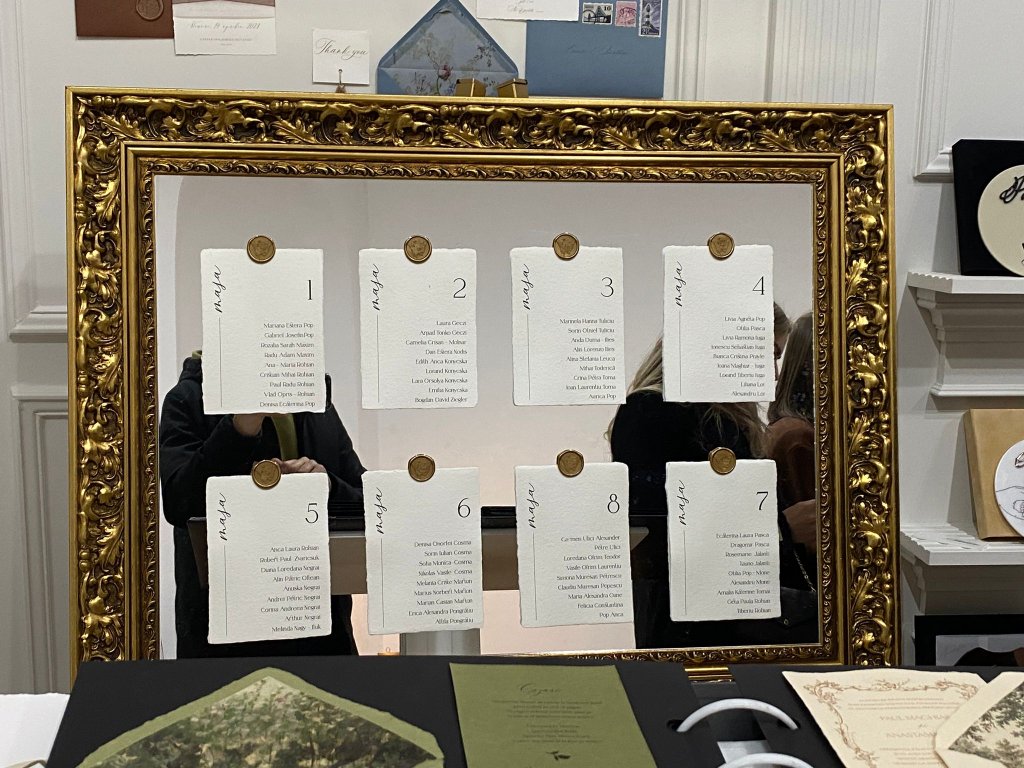 Thank you
masa
1
Mariana Estera Pop
Gabriel Josefin Pop
Rozalia Sarah Maxim
Radu Adam Maxim
Ana - Maria Rohian
Cristian Mihai Rohian
Paul Radu Rohian
Vlad Opris - Rohian
Denisa Ecaterina Pop
masa
2
Laura Geczi
Arpad Toniо Geczi
Camelia Crisan - Molnar
Dan Estera Nodis
Edith Anca Konycska
Lorand Konycska
Lara Orsolya Konycska
Emilia Konycska
Bogdan David Ziegler
masa
3
Marinela Hanna Tuliciu
Sorin Otniel Tuliciu
Anda Duma - Ilies
Alin Lorenzo Ilies
Alina Stefania Leuca
Mihai Todorică
Crina Petra Toma
Ioan Laurentiu Toma
Aurica Pop
masa
4
Livia Agneta Pop
Otilia Pasca
Livia Ramona Iuga
Ionescu Sebastian Iuga
Bianca Cristina Pravie
Ioana Maghiar - Iuga
Lorand Tiberiu Iuga
Liliana Lor
Alexandru Lor
masa
5
Anca Laura Rohian
Robert Paul Zvaricsuk
Diana Loredana Negrai
Alin Patric Oltean
Anuska Negrai
Andrei Petric Negrai
Corina Andreea Negrai
Arthur Negrai
Melinda Nagy - Iluk
masa
6
Denisa Onorfei Cosma
Sorin Iulian Cosma
Sofia Monica Cosma
Nikolas Vasile Cosma
Melania Cristie Martion
Marius Norbert Martion
Marian Casian Martion
Erica Alexandra Pongratiu
Attila Pongratiu
masa
8
Carmen Ulici Alexander
Petre Ulici
Loredana Ofrim Teodor
Vasile Ofrim Laurentiu
Simona Muresan Petrescu
Claudiu Muresan Popescu
Maria Alexandra Gune
Felicia Constantina
Pop Anca
masa
7
Ecaterina Laura Pasca
Dragomir Pasca
Rosemarie Jaloili
Tasno Jaloili
Otilia Pop - Mone
Alexandru Mone
Amalia Karenne Tomai
Geta Paula Rohian
Tiberiu Rohian